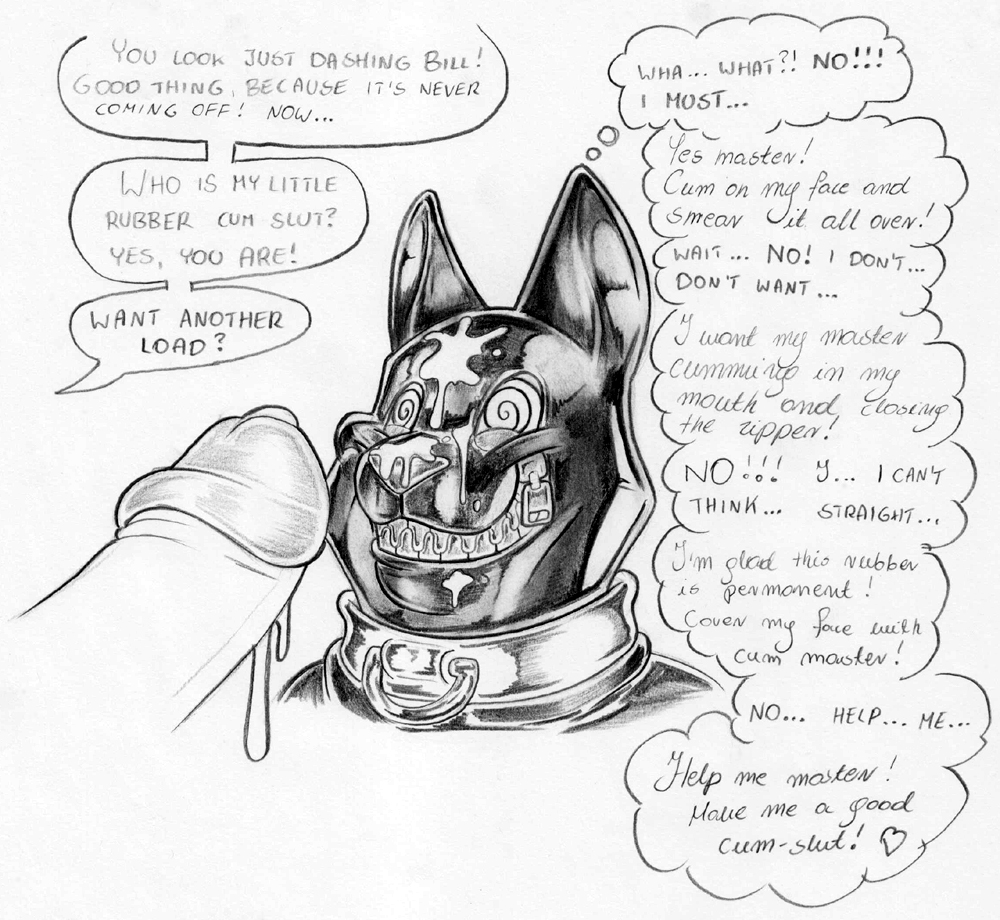 YOU LOOK JUST DASHING BILL!
GOOD THING, BECAUSE IT'S NEVER
COMING OFF! NOW...
WHO IS MY LITTLE
RUBBER CUM SLUT?
YES, YOU ARE!
WANT ANOTHER
LOAD?
WHA... WHAT?! NO!!!
I MUST...
Yes master!
Cum on my face and
smear it all over!
WAIT... NO! I DON'T...
DON'T WANT...
I want my master
cumming in my
mouth and closing
the zipper!
NO!!! I... I CAN'T
THINK... STRAIGHT...
I'm glad this rubber
is permanent!
Cover my face with
cum master!
NO... HELP... ME...
Help me master!
Make me a good
cum-slut! ♡